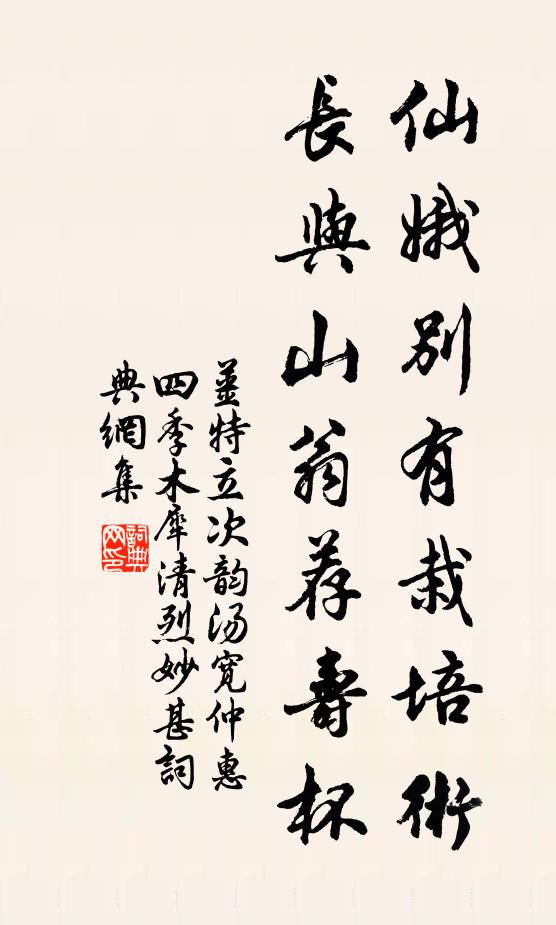 仙娥別有栽培術
長與山翁荐壽杯
薑特立次韵汤寬仲惠
四季木犀清烈妙甚詞
典網集
詞典网印